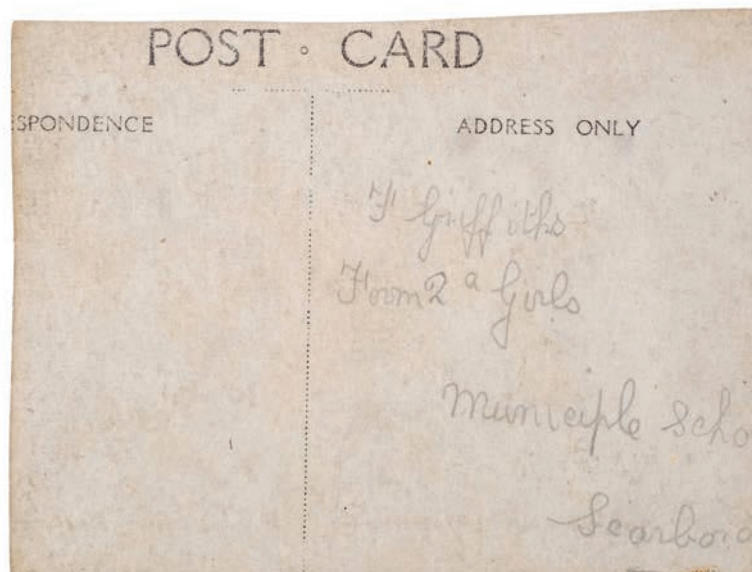 POST CARD
SPONDENCE
ADDRESS ONLY
F Griffiths
Form 2 a Girls
Municiple Scho
Scarboro